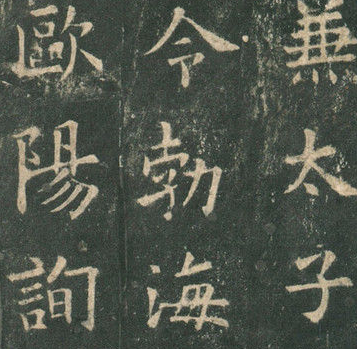 兼太子
令勃海
歐陽詢